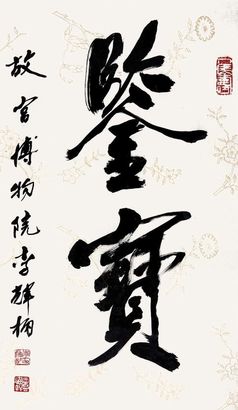 鑒寶
故宫博物院李輝柄